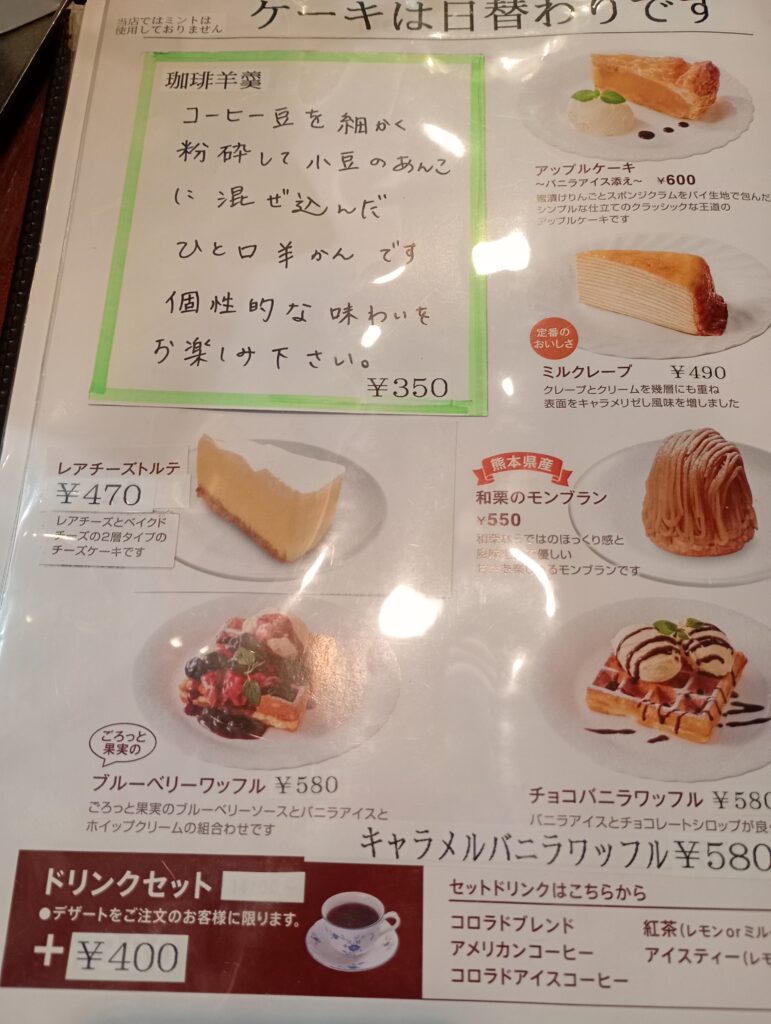 当店ではミントは
使用しておりません
ケーキは日替わりです
珈琲羊羹
コーヒー豆を細かく
粉砕して小豆のあんこ
に混ぜ込んだ
ひと口羊かんです
個性的な味わいを
お楽しみ下さい。
¥350
アップルケーキ
~バニラアイス添え~ ¥600
蜜漬けりんごとスポンジクラムをパイ生地で包んだ
シンプルな仕立てのクラッシックな王道の
アップルケーキです
定番の
おいしさ
ミルクレープ ¥490
クレープとクリームを幾層にも重ね
表面をキャラメリゼし風味を増しました
レアチーズトルテ
¥470
レアチーズとベイクド
チーズの2層タイプの
チーズケーキです
熊本県産
和栗のモンブラン
¥550
和栗ならではのほっくり感と
優しい
モンブランです
ごろっと
果実の
ブルーベリーワッフル ¥580
ごろっと果実のブルーベリーソースとバニラアイスと
ホイップクリームの組合わせです
チョコバニラワッフル ¥580
バニラアイスとチョコレートシロップが良
キャラメルバニラワッフル¥580
ドリンクセット
●デザートをご注文のお客様に限ります。
+¥400
セットドリンクはこちらから
コロラドブレンド
アメリカンコーヒー
コロラドアイスコーヒー
紅茶(レモンorミル
アイスティー(レモ